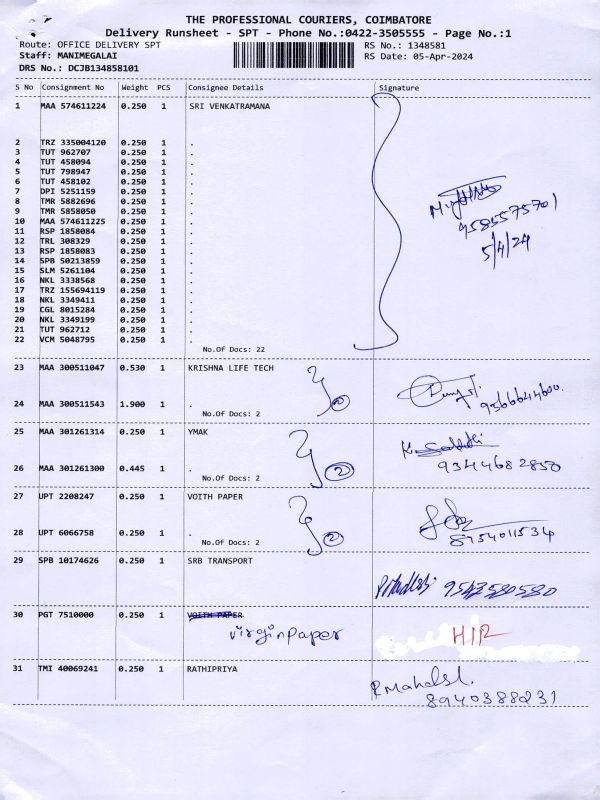 THE PROFESSIONAL COURIERS, COIMBATORE
Delivery Runsheet - SPT - Phone No.:0422-3505555 - Page No.:1
Route: OFFICE DELIVERY SPT RS No.: 1348581
Staff: MANIMEGALAI RS Date: 05-Apr-2024
DRS No.: DCJB134858101
S No Consignment No Weight PCS Consignee Details Signature
1 MAA 574611224 0.250 1 SRI VENKATRAMANA
2 TRZ 335004120 0.250 1 .
3 TUT 962707 0.250 1 .
4 TUT 458094 0.250 1 .
5 TUT 798947 0.250 1 .
6 TUT 458102 0.250 1 .
7 DPI 5251159 0.250 1 .
8 TMR 5882696 0.250 1 .
9 TMR 5858050 0.250 1 .
10 MAA 574611225 0.250 1 .
11 RSP 1858084 0.250 1 .
12 TRL 308329 0.250 1 .
13 RSP 1858083 0.250 1 .
14 SPB 50213859 0.250 1 .
15 SLM 5261104 0.250 1 .
16 NKL 3338568 0.250 1 .
17 TRZ 155694119 0.250 1 .
18 NKL 3349411 0.250 1 .
19 CGL 8015284 0.250 1 .
20 NKL 3349199 0.250 1 .
21 TUT 962712 0.250 1 .
22 VCM 5048795 0.250 1 .
9585575701
5/4/24
No.Of Docs: 22
23 MAA 300511047 0.530 1 KRISHNA LIFE TECH
9566644600.
24 MAA 300511543 1.900 1 .
2
No.Of Docs: 2
25 MAA 301261314 0.250 1 YMAK
26 MAA 301261300 0.445 1 .
2 9344682850
No.Of Docs: 2
27 UPT 2208247 0.250 1 VOITH PAPER
28 UPT 6066758 0.250 1 .
2 8954011534
No.Of Docs: 2
29 SPB 10174626 0.250 1 SRB TRANSPORT
9543580580
30 PGT 7510000 0.250 1 VOITH PAPER
virginpaper
31 TMI 40069241 0.250 1 RATHIPRIYA
8940388231